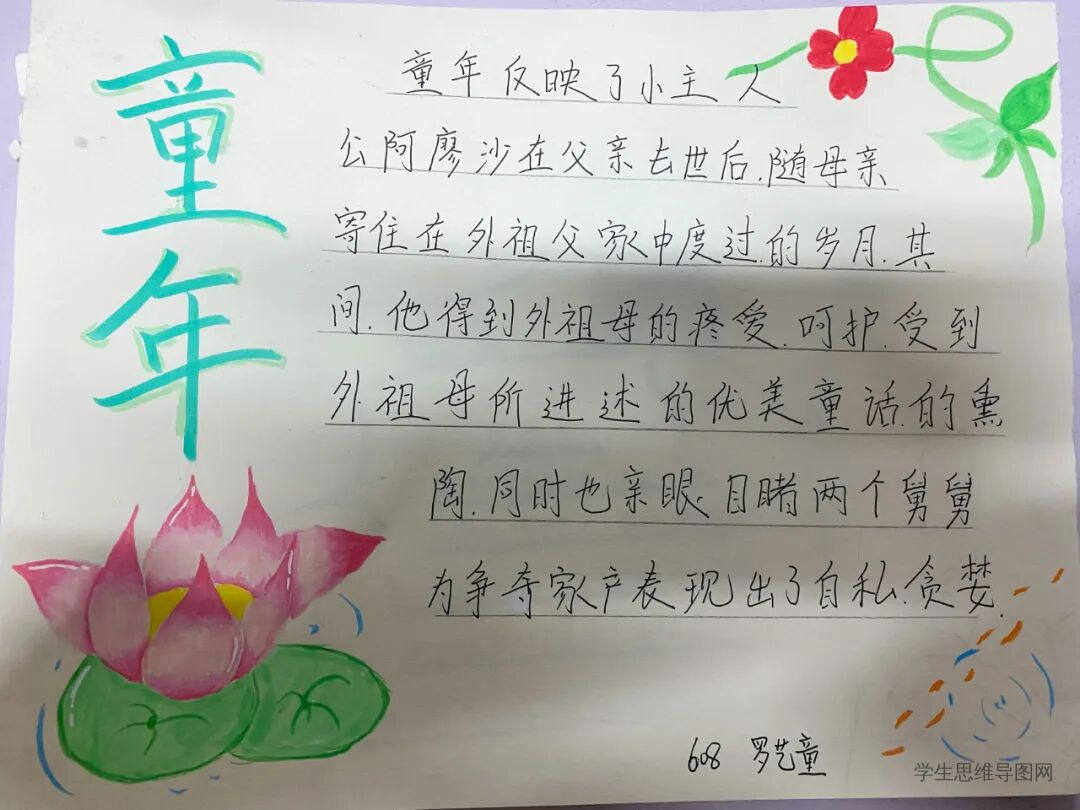 童年
童年反映了小主人
公阿廖沙在父亲去世后.随母亲
寄住在外祖父家中度过.的岁月.其
间.他得到外祖母的疼爱.呵护.受到
外祖母所进述的优美童话.的熏
陶.同时也亲眼目睹两个舅舅
为争夺家产表现出了自私.贪婪.
608 罗艺童
学生思维导图网